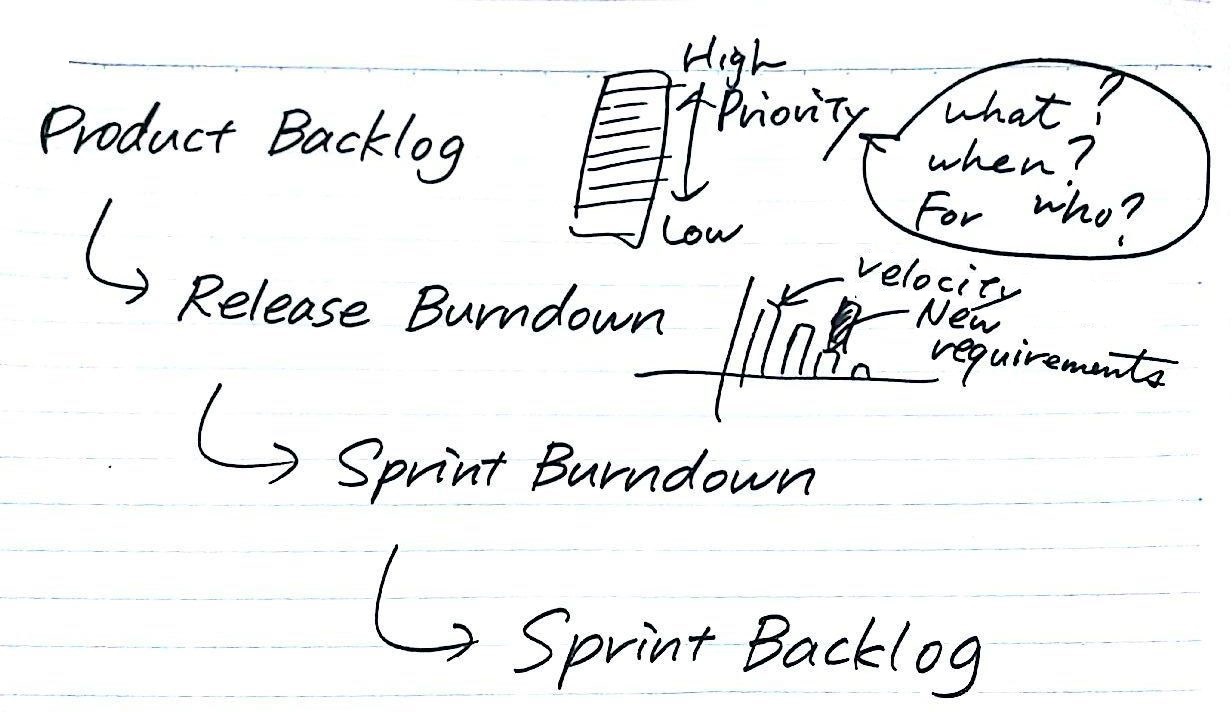 High
Product Backlog
Priority
Low
what?
when?
For who?
Release Burndown
velocity
New
requirements
Sprint Burndown
Sprint Backlog